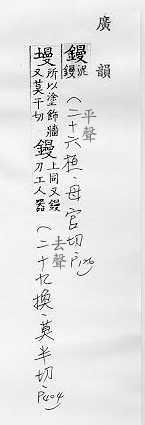 廣韻
鏝泥鏝（二十六桓，母官切，P126）
平聲
墁所以塗飾牆又莫干切鏝上同又鏝刀工人器（二十九換，莫半切，P404）
去聲